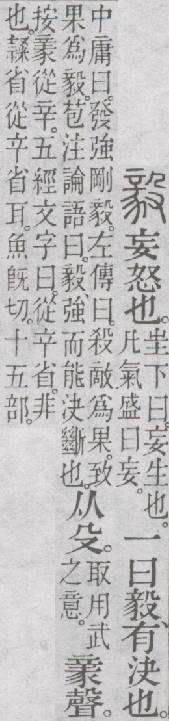 毅妄怒也。㞷下曰。妄生也。
凡氣盛曰妄。
一曰毅、有決也。
中庸曰。發強剛毅。左傳曰。殺敵為果。致
果為毅。苞注論語曰。毅、強而能決斷也。
从殳。取用武
之意。
豙聲。
按豙從辛。五經文字曰。從辛省。非
也。省從辛省耳。魚旣切。十五部。